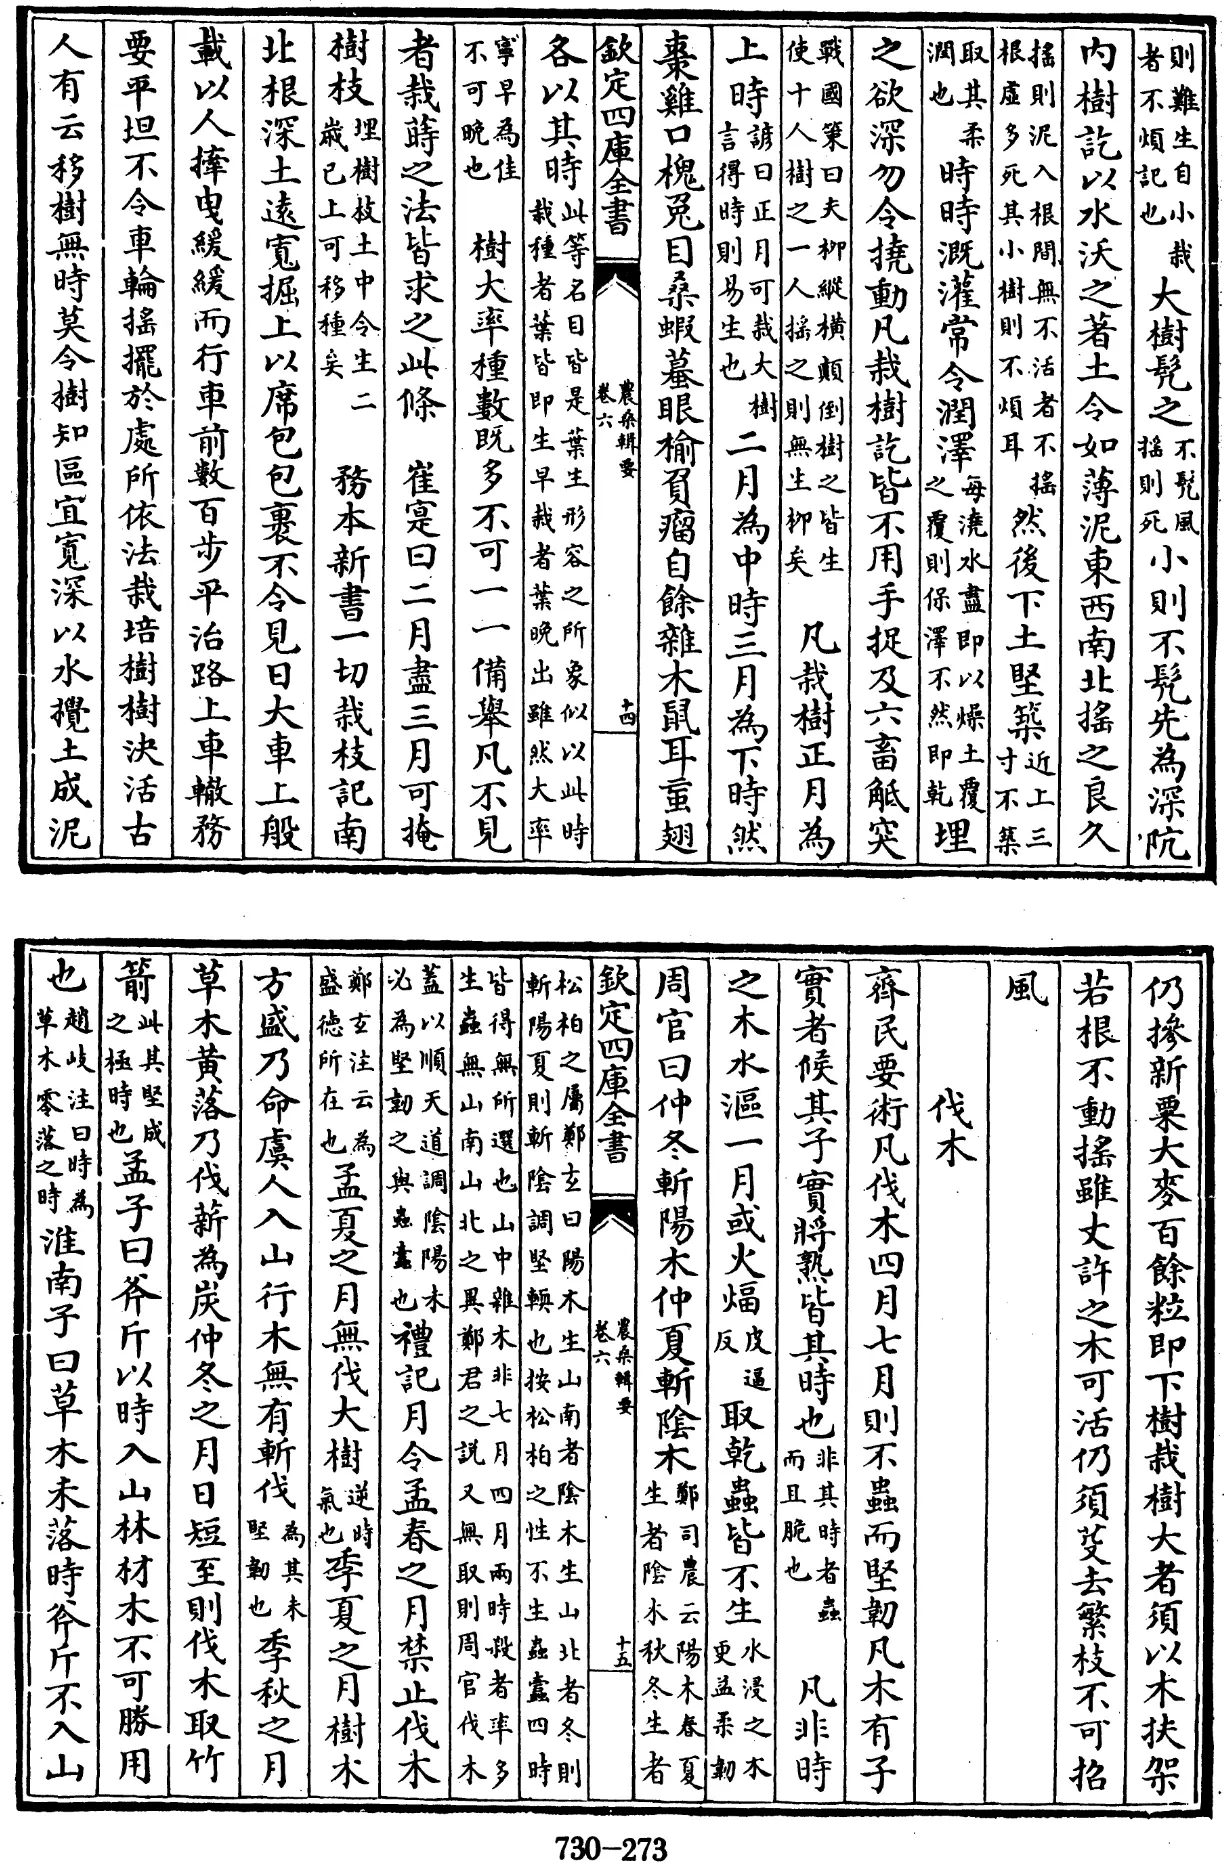 則難生自小栽
者不煩記也
大樹髠之
不髠風
搖則死
小則不髠先為深阬
内樹訖以水沃之著土令如薄泥東西南北搖之良久
搖則泥入根間無不活者不搖
根虛多死其小樹則不煩耳
然後下土堅築
近上三
寸不築
取其柔
潤也
時時溉灌常令潤澤
每澆水盡即以燥土覆
之覆則保澤不然即乾
埋
之欲深勿令撓動凡栽樹訖皆不用手捉及六畜觝突
戰國策曰夫柳縱橫顛倒樹之皆生
使十人樹之一人搖之則無生柳矣
凡栽樹正月為
上時
諺曰正月可栽大樹
言得時則易生也
二月為中時三月為下時然
棗雞口槐兔目桑蝦蟇眼榆負瘤自餘雜木鼠耳䖟翅
欽定四庫全書
農桑輯要
卷六
十四
各以其時
此等名目皆是葉生形容之所象似以此時
栽種者葉皆即生早栽者葉晚出雖然大率
寧早為佳
不可晚也
樹大率種數既多不可一一備舉凡不見
者栽蒔之法皆求之此條 崔寔曰二月盡三月可掩
樹枝
埋樹枝土中令生二
歲已上可移種矣
務本新書一切栽枝記南
北根深土遠寛掘上以席包包裹不令見日大車上般
載以人捧曳緩緩而行車前數百步平治路上車轍務
要平坦不令車輪搖擺於處所依法栽培樹樹決活古
人有云移樹無時莫令樹知區宜寛深以水攪土成泥
仍摻新粟大麥百餘粒即下樹栽樹大者須以木扶架
若根不動搖雖丈許之木可活仍須芟去繁枝不可招
風
伐木
齊民要術凡伐木四月七月則不蟲而堅韌凡木有子
實者候其子實將熟皆其時也
非其時者蟲
而且脆也
凡非時
之木水漚一月或火煏
皮逼
反
取乾蟲皆不生
水浸之木
更益柔韌
周官曰仲冬斬陽木仲夏斬陰木
鄭司農云陽木春夏
生者陰木秋冬生者
欽定四庫全書
農桑輯要
卷六
十五
松柏之屬鄭玄曰陽木生山南者陰木生山北者冬則
斬陽夏則斬陰調堅輭也按松柏之性不生蟲蠧四時
皆得無所選也山中雜木非七月四月兩時殺者率多
生蟲無山南山北之異鄭君之説又無取則周官伐木
蓋以順天道調陰陽木
必為堅韌之與蟲蠧也
禮記月令孟春之月禁止伐木
鄭玄注云為
盛德所在也
孟夏之月無伐大樹
逆時
氣也
季夏之月樹木
方盛乃命虞人入山行木無有斬伐
為其未
堅韌也
季秋之月
草木黄落乃伐薪為炭仲冬之月日短至則伐木取竹
箭
此其堅成
之極時也
孟子曰斧斤以時入山林材木不可勝用
也
趙岐注曰時為
草木零落之時
淮南子曰草木未落時斧斤不入山
730-273